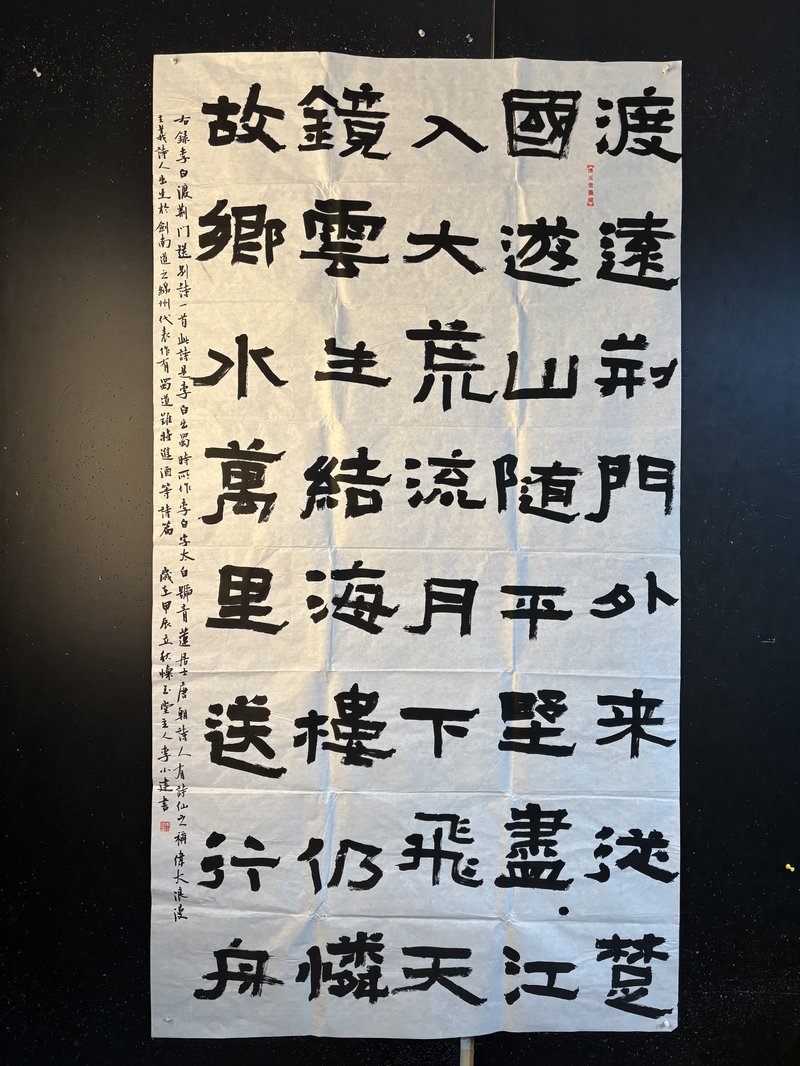 渡遠荆門外来從楚
國遊山随平墅盡江
入大荒流月下飛天
鏡雲生結海樓仍憐
故鄉水萬里送行舟
右錄李白渡荆门送别詩一首此詩是李白出蜀時所作李白字太白號青蓮居士唐朝詩人有詩仙之稱偉大浪漫
主義詩人出生於劍南道之綿州代表作有蜀道難將進酒等詩篇 歲在甲辰立秋懷玉堂主人李小建書